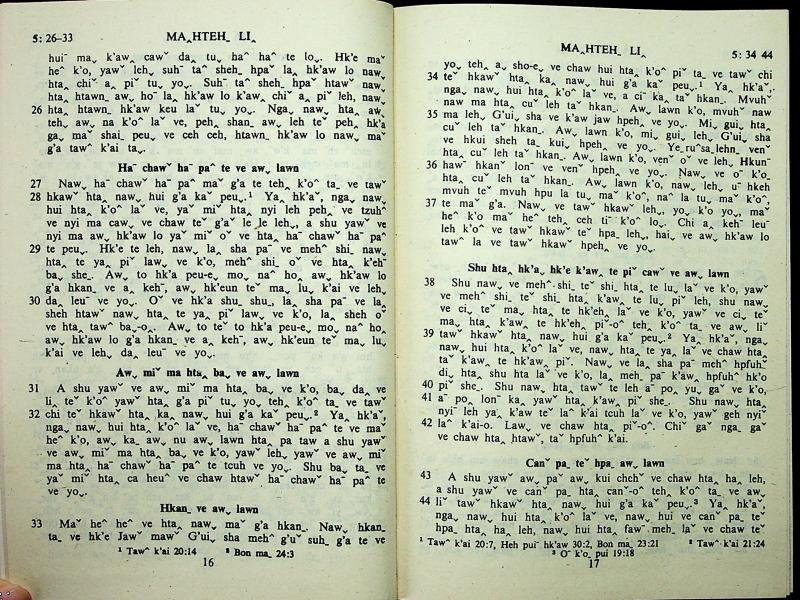 5: 26-33 MA‸HTEH_ LI‸
huiˉ ma˯ k'aw‸ cawˇ da‸ tu˯ haˆ haˆ te lo˯. Hk'e maˇ
heˆ k'o, yawˇ leh˯ suhˉ taˆ sheh_ hpaˇ la‸ hk'aw lo naw˯
hta‸ chiˇ a‸ pi˄ tu˯ yo˯. Suhˉ taˆ sheh_ hpaˇ htawˇ naw˯
hta‸ htawn‸ aw˯ hoˉ la‸ hk'aw lo k'aw‸ chiˇ a‸ piˇ leh, naw˯
26 hta‸ htawn‸ hk'aw keu laˇ tu˯ yo˯. Nga˯ naw˯ hta‸ aw˯
teh˯ aw˯ na k'oˆ laˇ ve, peh‸ shan‸ aw˯ leh teˇ peh‸ hk'a
ga˯ maˇ shai_ peu˯ ve ceh ceh, htawn‸ hk'aw lo naw˯ maˇ
g'a tawˆ k'ai ta˯.
Haˉ chawˇ haˉ paˆ te ve aw˯ lawn
27 Naw˯ haˉ chawˇ haˉ pa˄ maˇ g'a te teh‸ k'oˆ ta_ ve tawˇ
28 hkawˇ hta‸ naw˯ hui g'a kaˇ peu˯.¹ Ya‸ hk'aˇ, nga˯ naw˯
hui hta‸ k'oˆ laˇ ve, yaˇ miˇ hta‸ nyi leh peh‸ ve tzuhˆ
ve nyi ma caw˯ ve chaw teˇ g'aˇ le˯ le leh˯, a shu yawˇ ve
nyi ma aw˯ hk'aw lo yaˇ miˇ oˇ ve hta‸ haˉ chawˇ haˉ paˆ
29 te peu˯. Hk'e te leh, naw˯ la˯ sha paˇ ve mehˆ shi_ naw˯
hta‸ te ya‸ piˇ law˯ ve k'o, mehˆ shi_ oˇ ve hta‸ k'ehˉ
ba˯ she_. Aw˯ to hk'a peu-e˯ mo˯ naˇ ho‸ aw˯ hk'aw lo
g'a hkan_ ve a‸ kehˉ, aw˯ hk'eun teˇ ma˯ lu˯ k'ai ve leh˯
30 da˯ leuˉ ve yo˯. Oˇ ve hk'a shu_ shu_ la˯ sha paˇ ve la˯
sheh htawˇ naw˯ hta‸ te ya‸ piˇ law˯ ve k'o, la˯ sheh oˇ
ve hta‸ tawˆ ba˯-o˯. Aw˯ to teˇ to hk'a peu-e˯ mo˯ naˆ ho‸
aw˯ hk'aw lo g'a hkan_ ve a‸ kehˉ, aw˯ hk'eun teˇ ma˯ lu˯
k'ai ve leh˯ da˯ leuˉ ve yo˯.
Aw˯ miˇ ma hta‸ ba˯ ve aw˯ lawn
31 A shu yawˇ ve aw˯ miˇ ma hta‸ ba˯ ve k'o, ba˯ da˯ ve
li‸ teˇ k'oˆ yawˇ hta‸ g'a piˇ tu˯ yo˯ teh‸ k'oˆ ta_ ve tawˇ
32 chi teˇ hkawˇ hta‸ ka‸ naw˯ hui g'a kaˇ peu˯.² Ya‸ hk'aˇ,
nga˯ naw˯ hui hta‸ k'oˆ laˇ ve, haˉ chawˇ haˉ paˆ te ve maˇ
heˆ k'o, aw˯ ka_ aw˯ nu aw˯ lawn hta‸ pa taw a shu yawˇ
ve aw˯ miˇ ma hta‸ ba˯ ve k'o, yawˇ leh˯ yawˇ ve aw˯ miˇ
ma hta‸ haˉ chawˇ haˉ paˆ te tcuh ve yo˯. Shu ba˯ ta_ ve
yaˇ miˇ hta‸ ca heuˆ ve chaw htawˇ haˉ chawˇ haˉ paˆ te
veˉ yo˯.
Hkan_ ve aw˯ lawn
33 Maˇ heˆ heˆ ve hta‸ naw˯ maˇ g'a hkan_. Naw˯ hkan_
ta_ ve hk'e Jawˇ mawˇ G'ui‸ sha mehˆ g'uˇ suh_ g'a te ve
¹ Tawˆ k'ai 20:14 ² Bon ma_ 24:3
16
MA‸HTEH_ LI‸ 5: 34 44
yo˯ teh‸ a˯ sho-e˯ ve chaw hui hta‸ k'oˆ piˇ ta_ ve tawˇ chi
34 teˇ hkawˇ hta‸ ka‸ naw˯ hui g'a kaˇ peu˯.¹ Ya‸ hk'aˇ,
nga˯ naw˯ hui hta‸ k'oˆ laˇ ve, a ciˆ ka‸ taˇ hkan_. Mvuhˇ
naw ma hta‸ cuˇ leh taˇ hkan_. Aw˯ lawn k'o, mvuhˇ naw
35 ma leh˯ G'ui‸ sha ve k'aw jaw hpeh˯ ve yo˯. Mi˯ gui‸ hta‸
cuˇ leh taˇ hkan_. Aw˯ lawn k'o, mi˯ gui‸ leh˯ G'ui‸ sha
ve hkui sheh ta_ kui‸ hpeh˯ ve yo˯. Ye˯ruˆsa˯lehn˯ venˇ
hta‸ cuˇ leh taˇ hkan_. Aw˯ lawn k'o, venˇ oˇ ve leh˯ Hkunˉ
36 hawˇ hkanˇ lonˇ ve venˇ hpeh˯ ve yo˯. Naw˯ ve oˇ k'o˯
hta‸ cuˇ leh taˇ hkan_. Aw˯ lawn k'o, naw˯ leh˯ uˉ hkeh
mvuh teˇ mvuh hpu la tu˯ maˇ k'oˆ, naˆ la tu˯ maˇ k'oˆ,
37 te maˇ g'a. Naw˯ ve tawˇ hkawˇ leh˯, yo˯ k'o yo˯, maˇ
heˆ k'o maˇ heˆ teh‸ ceh tiˉ k'oˆ lo˯. Chi a‸ kehˉ leuˆ
leh k'oˆ ve tawˇ hkawˇ teˇ hpa˯ leh˯, hai˯ ve aw˯ hk'aw lo
tawˆ la ve tawˇ hkawˇ hpeh˯ ve yo˯.
Shu hta‸ hk'a˯ hk'e k'aw‸ te piˇ cawˇ ve aw˯ lawn
38 Shu naw˯ ve mehˆ shi_ teˇ shi_ hta‸ te lu˯ laˇ ve k'o, yawˇ
ve mehˆ shi_ teˇ shi_ hta‸ k'aw‸ te lu˯ piˇ leh, shu naw˯
ve ci‸ teˇ ma‸ hta‸ te hk'eh‸ laˇ ve k'o, yawˇ ve ci‸ teˇ
ma‸ hta‸ k'aw‸ te hk'eh‸ piˇ-oˆ teh‸ k'oˆ ta_ ve aw˯ liˇ
39 tawˇ hkawˇ hta‸ naw˯ hui g'a kaˇ peu˯.² Ya‸ hk'aˇ, nga˯
naw˯ hui hta‸ k'oˆ laˇ ve, naw˯ hta‸ te ya‸ laˇ ve chaw hta‸
taˇ k'aw‸ te hk'aw‸ piˇ. Naw˯ ve la˯ sha paˇ mehˆ hpfuhˇ
di˯ hta‸ shu hta laˇ ve k'o, la˯ meh_ paˇ k'aw‸ hpfuhˇ hk'o
40 piˇ she_. Shu naw˯ hta‸ tawˇ te leh aˇ po‸ yu˯ gaˇ ve k'o,
41 aˇ po‸ lonˇ ka‸ yawˇ hta‸ k'aw‸ piˇ she_. Shu naw˯ hta‸
nyiˇ leh ya‸ k'aw teˇ laˆ k'ai tcuh laˇ ve k'o, yawˇ geh nyiˇ
42 laˆ k'ai-o. Law˯ ve chaw hta‸ piˇ-oˆ. Chiˇ gaˇ nga_ gaˇ
ve chaw hta‸ htawˇ, taˇ hpfuhˆ k'ai.
Canˇ pa_ teˇ hpa˯ aw˯ lawn
43 A shu yawˇ aw˯ paˇ aw˯ kui chchˇ ve chaw hta‸ ha‸ leh,
a shu yawˇ ve canˇ pa_ hta‸ canˇ-oˆ teh‸ k'oˆ ta_ ve aw˯
44 liˇ tawˇ hkawˇ hta‸ naw˯ hui g'a kaˇ peu˯.³ Ya‸ hk'aˇ,
nga˯ naw˯ hui hta‸ k'oˆ laˇ ve, naw˯ hui ve canˇ pa_ teˇ
hpa˯ hta‸ ha‸ leh, naw˯ hui hta‸ fawˇ meh˯ laˇ ve chaw teˇ
¹ Tawˆ k'ai 20:7, Heh puiˉ hk'aw 30:2, Bon ma_ 23:21 ² Tawˆ k'ai 21:24
³ Oˇ k'o˯ pui 19:18
17